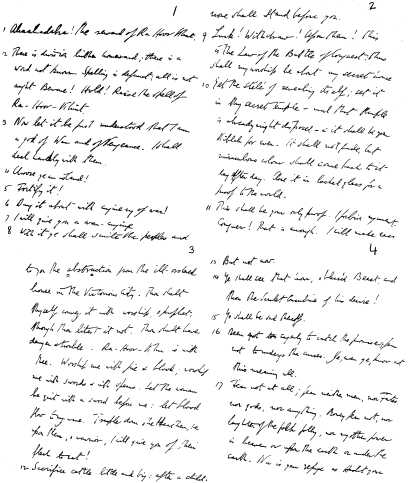 1
1 Abrahadabra! The reward of Ra Hoor Khut.
2 There is division hither homeward; there is a
word not known. Spelling is defunct; all is not
aught. Beware! Hold! Raise the spell of
Ra-Hoor-Khuit
3 Now let it be first understood that I am
a god of War and of Vengeance. I shall
deal hardly with them
4 Choose ye an Island!
5 Fortify it!
6 Dung it about with enginery of war!
7 I will give you a war-engine
8 With it ye shall smite the peoples and
2
none shall stand before you.
9 Lurk! Withdraw! Upon them! This
is the Law of the Battle of Conquest: thus
shall my worship be about my secret house
10 Get the stélé of revealing itself; set it
in thy secret temple — and that temple
is already aright disposed — & it shall be your
Kiblah for ever. It shall not fade, but
miraculous colour shall come back to it
day after day. Close it in locked glass for a
proof to the world.
11 This shall be your only proof. I forbid argument.
Conquer! That is enough. I will make easy
3
to you the abstruction from the ill-ordered
house in the Victorious City. Thou shalt
thyself convey it with worship, o prophet,
though thou likest it not. Thou shalt have
danger & trouble. Ra-Hoor-Khu is with
thee. Worship me with fire & blood; worship
me with swords & with spears. Let the woman
be girt with a sword before me: let blood
flow to my name. Trample down the Heathen; be
upon them, o warrior, I will give you of their
flesh to eat!
12 Sacrifice cattle little and big: after a child.
4
13 But not now
14 Ye shall see that hour, o blesséd Beast and
thou the Scarlet Concubine of his desire!
15 Ye shall be sad thereof.
16 Deem not too eagerly to catch the promises; fear
not to undergo the curses. Ye, even ye, know not
this meaning all.
17 Fear not at all; fear neither men, nor Fates
nor gods, nor anything. Money fear not, nor
laughter of the folk folly, nor any other power
in heaven or upon the earth or under the
earth. Nu is your refuge as Hadit your